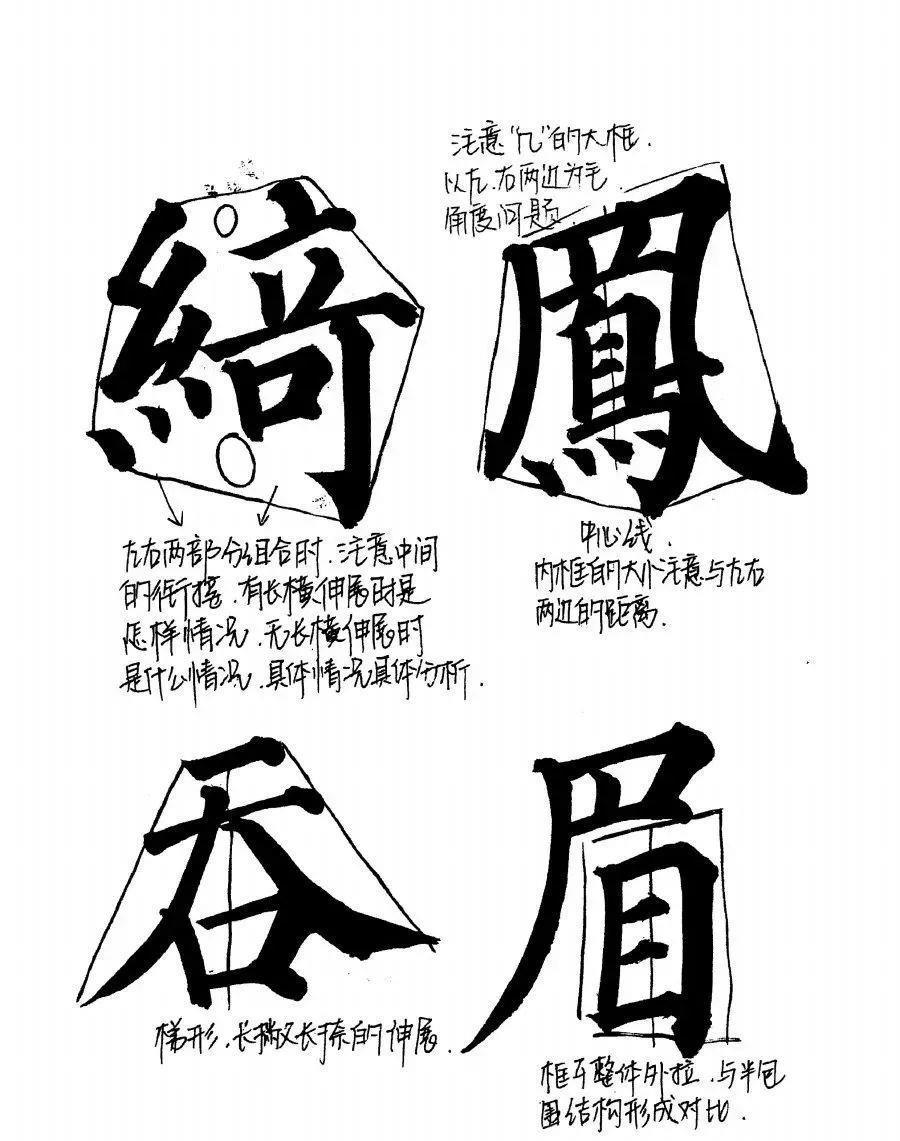 綺
左右两部分组合时.注意中间
的衔接.有长横伸展时是
怎样情况.无长横伸展时
是什么情况.具体情况具体分析.
注意“几”的大框.
以左.右两边为
角度问题.
鳳
中心线.
内框的大小注意与左右
两边的距离.
吞
梯形.长撇长捺的伸展.
眉
框子整体外拉.与半包
围结构形成对比.